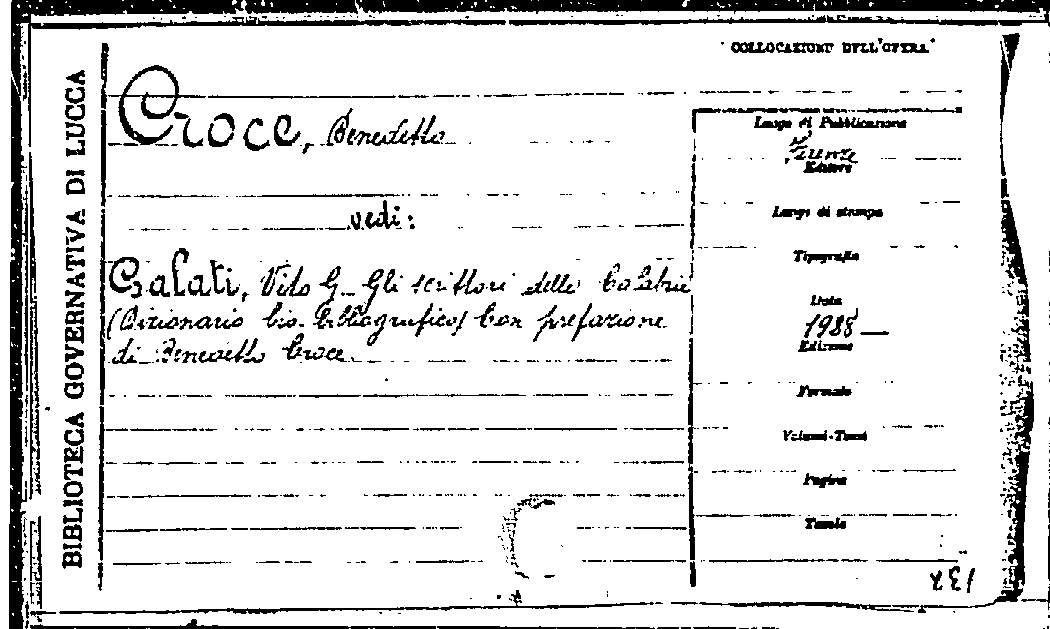 BIBLIOTECA GOVERNATIVA DI LUCCA
COLLOCAZIONE DELL'OPERA
Croce, Benedetto
vedi:
Galati, Vito G. Gli scrittori delle Calabrie
(Dizionario bio-bibliografico) Con prefazione
di Benedetto Croce.
Luogo di Pubblicazione
Firenze
Editore
Luogo di stampa
Tipografia
Data
1928
Edizione
Formato
Volumi-Tomi
Pagine
Tavole